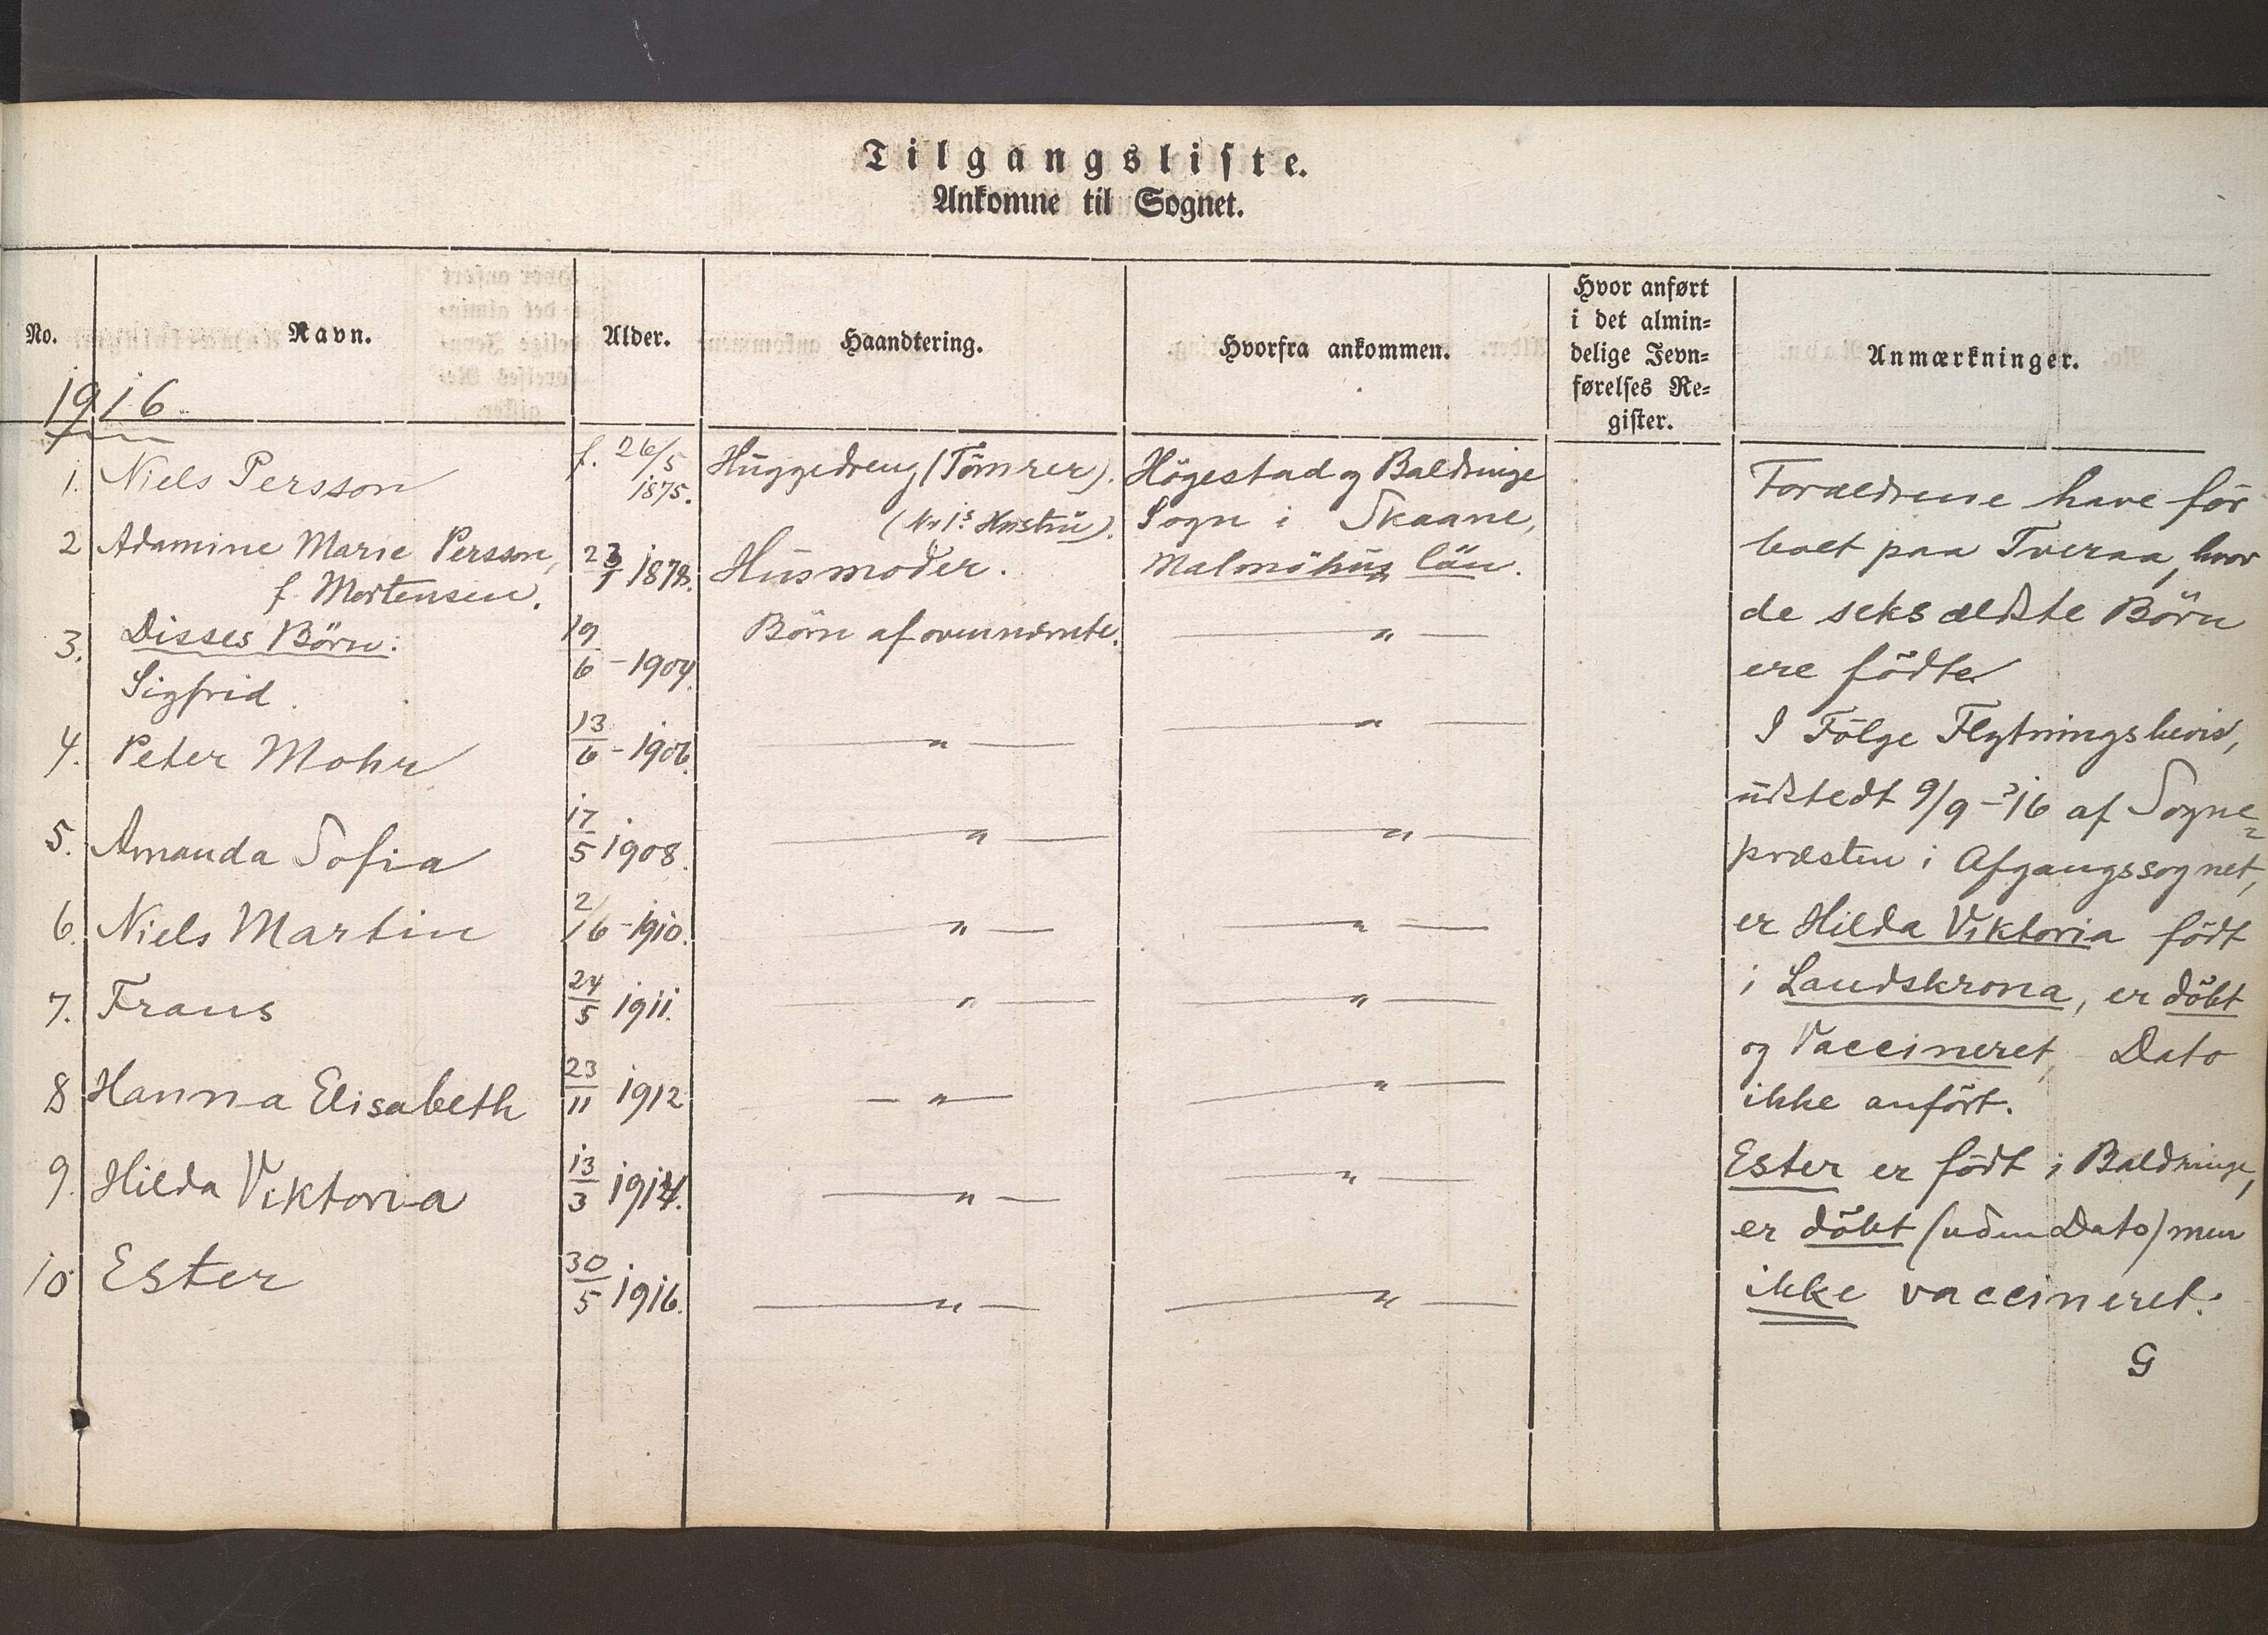 Tilgangsliste.
Ankomne til Sognet.
No. Navn. Alder. Haandtering. Hvorfra ankommen. Hvor anført i det almin= delige Jevn= førelses Re= gister. Anmærkninger.
1916.
1. Niels Persson f. 26/5 1875. Huggedreng (Tömrer). Högestad og Baldringe
(No 1s Hustru). Sogn i Skaane,
2 Adamine Marie Persson, f. Mortensen. Husmoder. Malmöhus län.
3. Disses Börn: Börn af ovennævnte. — " —
Sigfrid. 19/6 - 1904.
4. Peter Mohr 13/6 - 1906. — " — — " —
5. Amanda Sofia 17/5 1908. — " — — " —
6. Niels Martin 2/6 - 1910. — " — — " —
7. Frans 24/5 1911. — " — — " —
8 Hanna Elisabeth 23/11 1912 — " — — " —
9. Hilda Viktoria 13/3 1914. — " — — " —
10 Ester 30/5 1916. — " — — " —
Forældrene have för
boet paa Tveraa, hvor
de seks ældste Börn
ere födte.
I Fölge Flytningsbevis,
udstedt 9/9 - '16 af Sogne=
præsten i Afgangssognet,
er Hilda Viktoria födt
i Landskrona, er döbt
og Vaccineret, Dato
ikke anfört.
Ester er födt i Baldringe,
er döbt (uden Dato) men
ikke vaccineret.
G